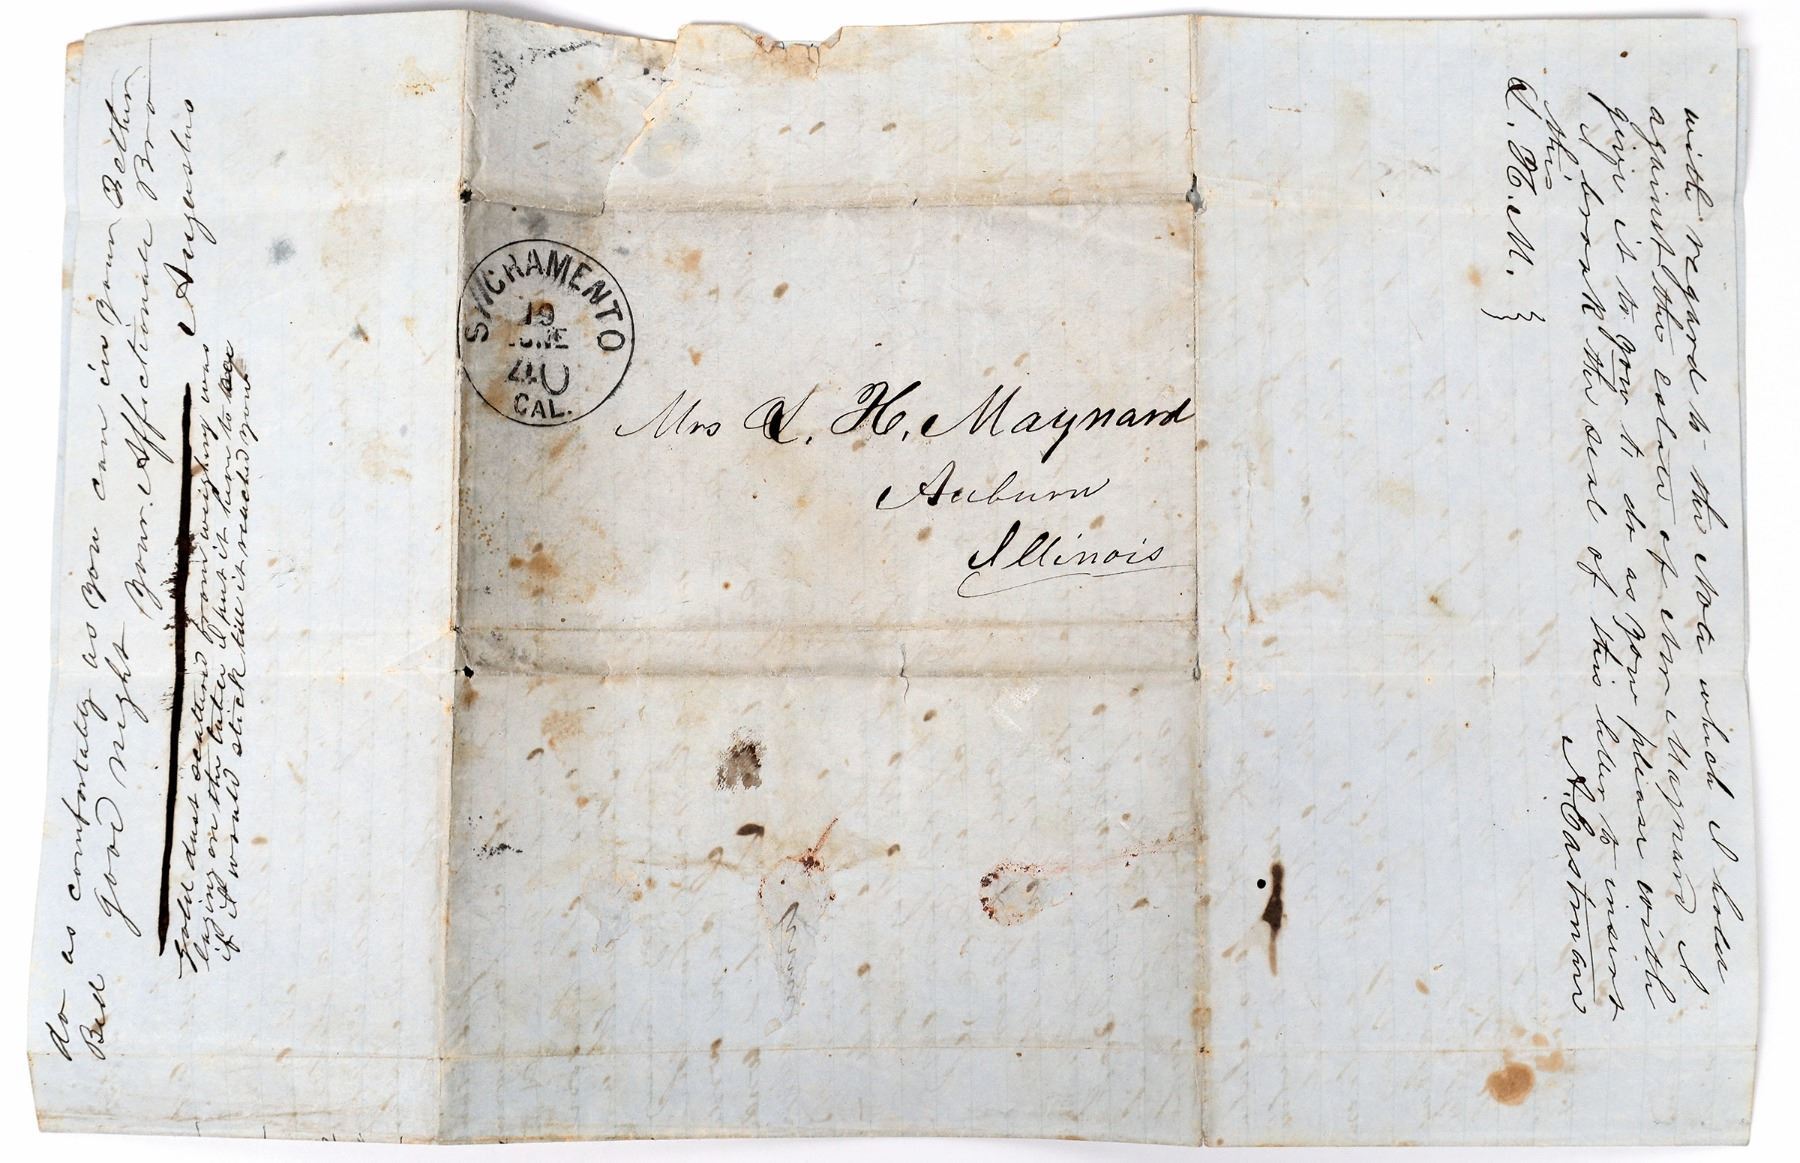 do as comfortably as you can in your Bethen
Bed good night your Affectionate Bro
Augustus
Gold dust scattered from weighing was
laying on the table I put it here to see
if it would stick till it reached you
SACRAMENTO
19
JUNE
40
CAL.
Mrs L. H. Maynard
Auburn
Illinois
with regard to the Note which I hold
against the estate of Mr Maynard I
give it to you to do as you please with
I broak the seal of this letter to insert
this A. Eastman
L. H. M. }